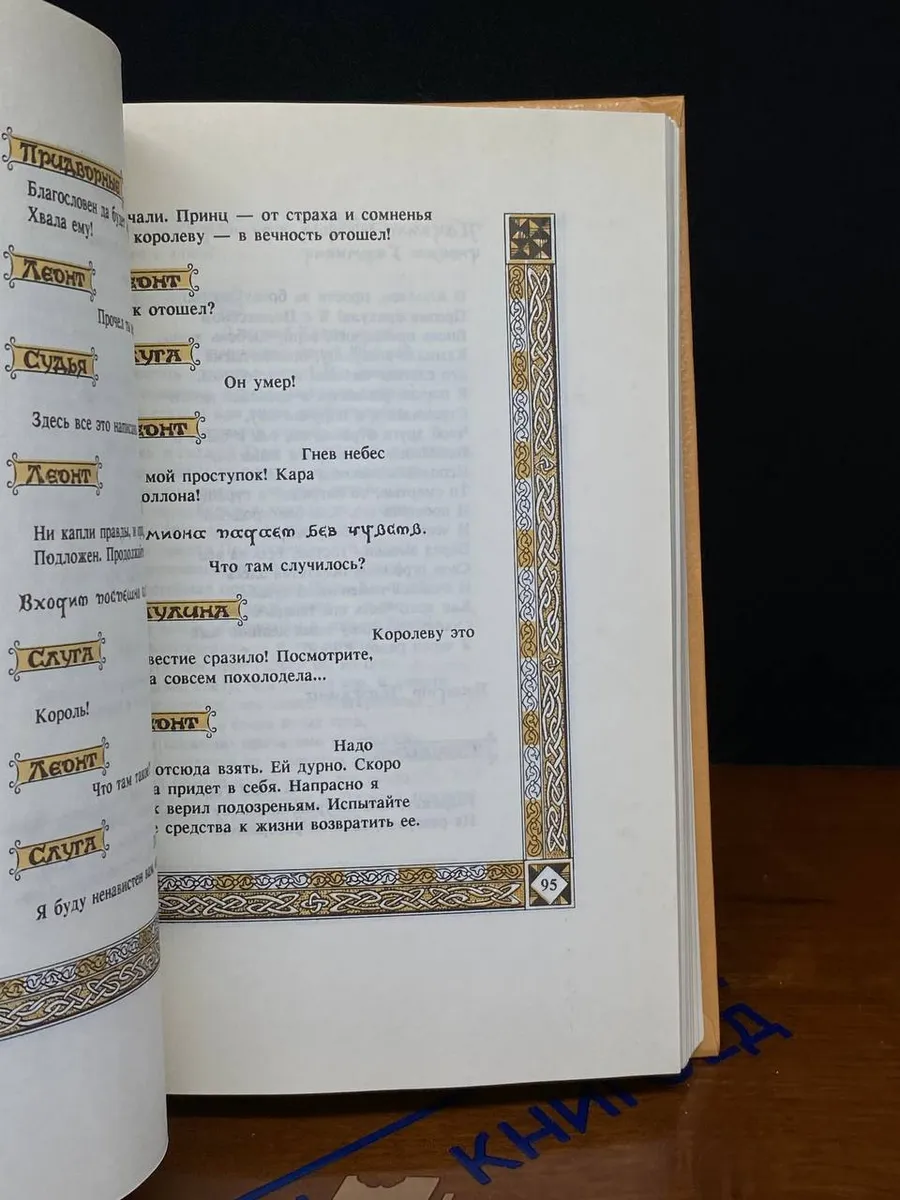 Придворные
Благословен да
Хвала ему!
Леонт
Прочел
Судья
Здесь все это
Леонт
Ни капли правды, и
Подложен.
Входит
Слуга
Король!
Леонт
Что там
Слуга
Я буду ненавистен
чали. Принц — от страха и сомненья
королеву — в вечность отошел!
онт
к отошел?
уга
Он умер!
онт
Гнев небес
мой проступок! Кара
оллона!
миона падает без чувств.
Что там случилось?
улина
Королеву это
вестие сразило! Посмотрите,
а совсем похолодела...
онт
Надо
отсюда взять. Ей дурно. Скоро
а придет в себя. Напрасно я
к верил подозреньям. Испытайте
е средства к жизни возвратить ее.
95